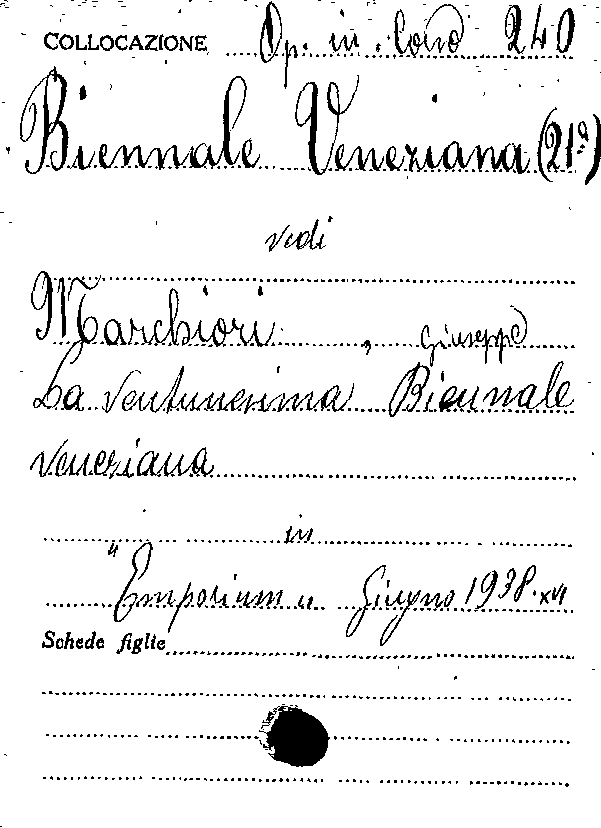 COLLOCAZIONE Op. in. Cons 240
Biennale Veneziana (21ª)
vedi
Marchiori, Giuseppe
La ventunesima Biennale
veneziana
in
"Emporium" Giugno 1938.XVI
Schede figlie